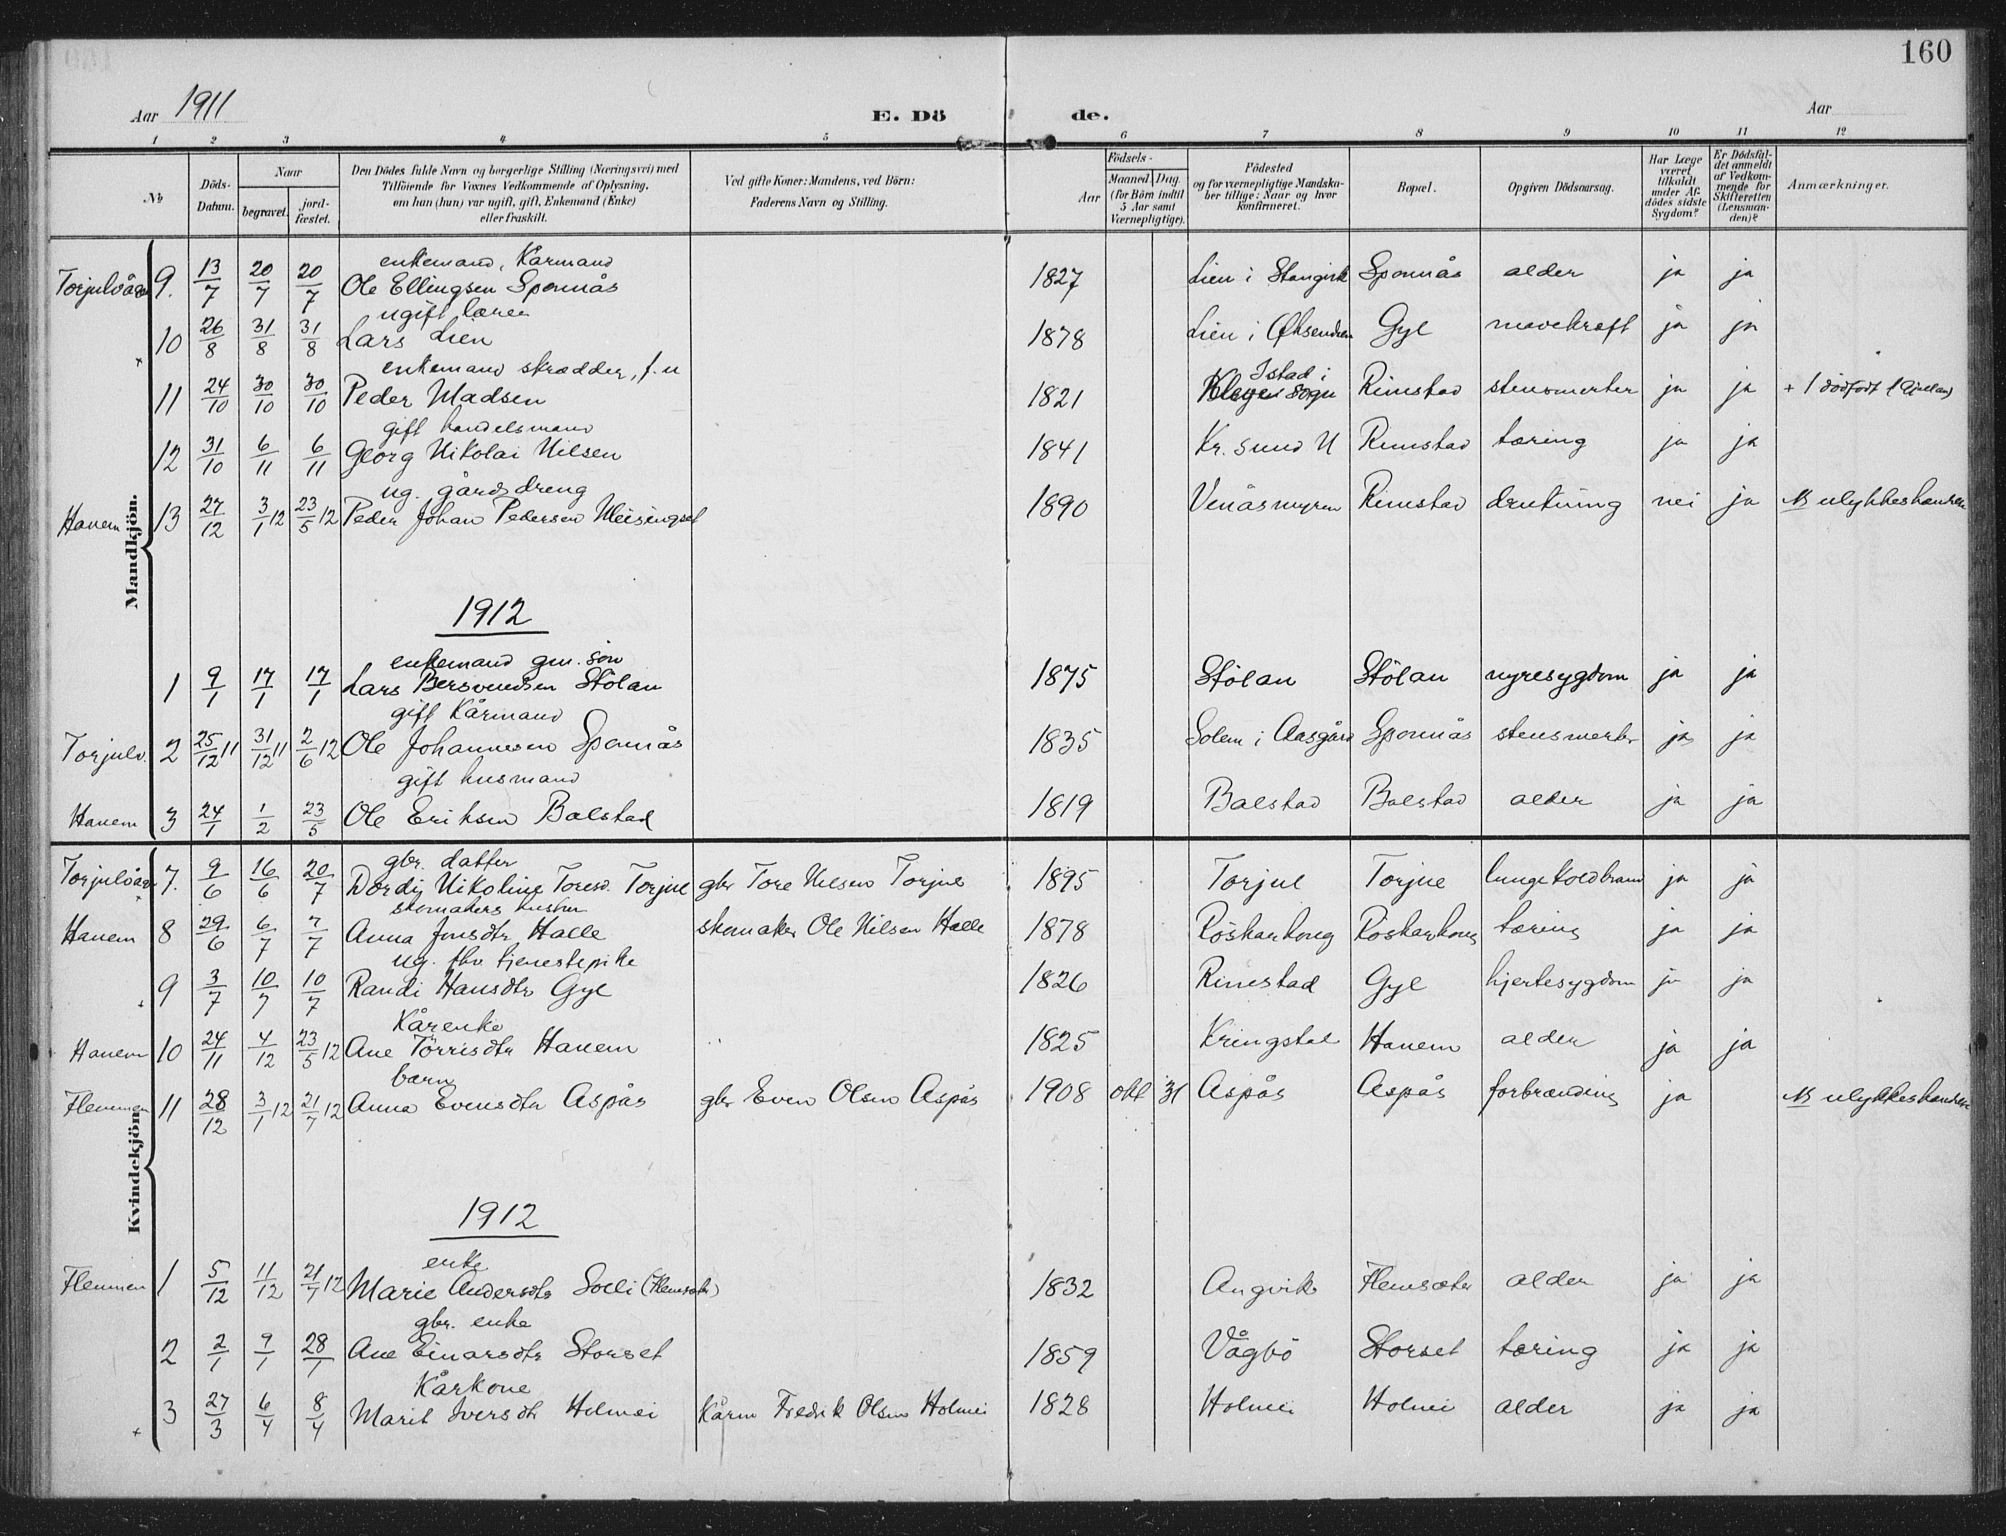 160
Aar 1911
E. Dö de.
Aar
1 2 3 4 5 6 7 8 9 10 11 12
No
Döds-Datum.
Naar
begravet.
jord-fæstet.
Den Dödes fulde Navn og borgerlige Stilling (Næringsvei) med
Tilföiende for Voxnes Vedkommende af Oplysning,
om han (hun) var ugift, gift, Enkemand (Enke)
eller fraskilt.
Ved gifte Koner: Mandens, ved Börn:
Faderens Navn og Stilling.
Aar
Födsels-
Maaned Dag.
(for Börn indtil
5 Aar samt
Værnepligtige).
Födested
og for værnepligtige Mandska-
ber tillige: Naar og hvor
konfirmeret.
Bopæl.
Opgiven Dödsaarsag.
Har Læge
været
tilkaldt
under Af-
dödes sidste
Sygdom?
Er Dödsfal-
det anmeldt
af Vedkom-
mende for
Skifteretten
(Lensman-
den)?
Anmærkninger.
Mandkjön.
enkemand, Kårmand
Torjulvåg 9. 13/7 20/7 20/7 Ole Ellingsen Sponnås 1827 Lien i Stangvik Sponnås alder ja ja
ugift
10 26/8 31/8 31/8 Lars Lien 1878 Lien i Øksendalen Gyl mavekræft ja ja
enkemand skrædder, f. u
11 24/10 30/10 30/10 Peder Madsen 1821 Istad i Kleive sogn Rimstad stensmerter ja ja + 1 dödfödt
gift handelsmand
12 31/10 6/11 6/11 Georg Nikolai Nilsen 1841 Kr. sund N Rimstad tæring ja ja
ug. gårdsdreng
Hanem 13 27/12 3/1 12 23/5 12 Peder Johan Pedersen Meisingset 1890 Venåsmyren Rimstad drukning nei ja NB ulykkeshændelse
1912
enkemand gm. sön
1 9/1 17/1 17/1 Lars Bersvendsen Stölan 1875 Stölan Stölan nyresygdom ja ja
gift Kårmand
Torjulv. 2 25/12 11 31/12 11 2/6 12 Ole Johannesen Sponnås 1835 Solem i Aasgård Sponnås stensmerter ja ja
gift husmand
Hanem 3 24/1 1/2 23/5 Ole Eriksen Bolstad 1819 Bolstad Bolstad alder ja ja
Kvindekjön
gbr. datter
Torjulvåg 7. 9/6 16/6 20/7 Dordij Nikoline Toresd. Torjul gbr Tore Nilsen Torjul 1895 Torjul Torjul lungekoldbrand ja ja
skomakers hustru
Hanem 8 29/6 6/7 7/7 Anna Jonsdtr Halle skomaker Ole Nilsen Halle 1878 Röskarhoug Röskarhoug tæring ja ja
ug. fhv. tjenestepike
9 3/7 10/7 10/7 Randi Hansdtr Gyl 1826 Rimstad Gyl hjertesygdom ja ja
Kårenke
Hanem 10 24/11 4/12 23/5 12 Ane Törrisdtr Hanem 1825 Kringstad Hanem alder ja ja
barn
Flemmen 11 28/12 3/1 12 21/7 12 Anna Evensdtr Aspås gbr Even Olsen Aspås 1908 okt 31 Aspås Aspås forbrænding ja NB ulykkeshændelse
1912
enke
Flemmen 1 5/12 11/12 21/7 12 Marie Andersdtr Solli (Flemsæter) 1832 Angvik Flemsæter alder ja ja
gbr. enke
2 2/1 9/1 28/1 Ane Einarsdtr Storset 1859 Vågbö Storset tæring ja ja
Kårkone
3 27/3 6/4 8/4 Marit Iversdtr Holmei Kårm Fredrik Olsen Holmei 1828 Holmei Holmei alder ja ja